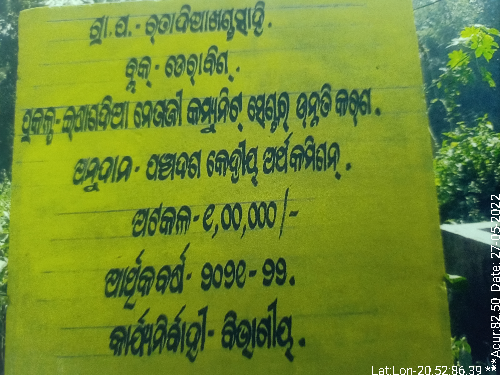 ଗ୍ରା.ପ.- ଡୋଦିଆଖଣ୍ଡସାହି.
ବ୍ଲକ୍ - ଡେରାବିଶ୍.
ପ୍ରକଳ୍ପ- ନେତାଜୀ କମ୍ୟୁନିଟ୍ ସେଣ୍ଟର୍ ଉନ୍ନତି କରଣ.
ଅନୁଦାନ - ପଞ୍ଚଦଶ କେନ୍ଦ୍ରୀୟ ଅର୍ଥକମିଶନ୍.
ଅଟକଳ - ୧,୦୦,୦୦୦/-
ଆର୍ଥିକବର୍ଷ - ୨୦୨୧ - ୨୨.
କାର୍ଯ୍ୟନିର୍ବାହୀ - ବିଭାଗୀୟ.
Lat:Lon-20.52:86.39 *** Acur:82.50 Date: 27-05-2022